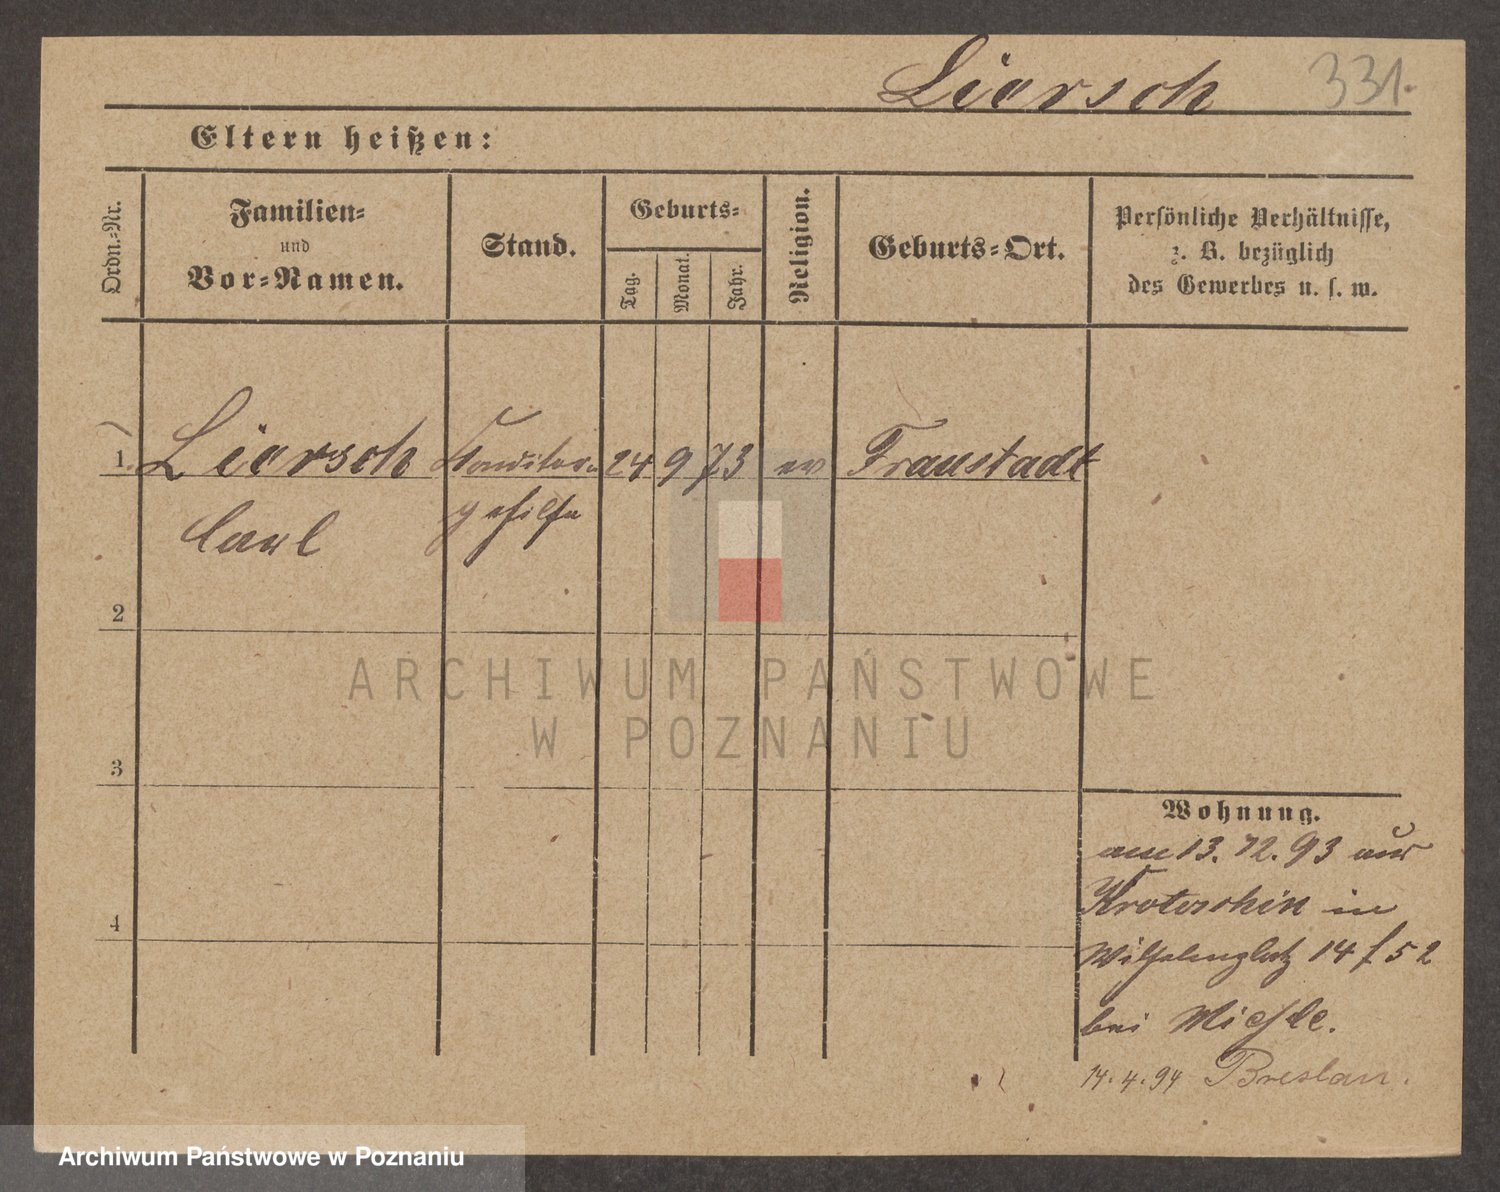 Liersch 331.
Eltern heißen:
Ordn.=Nr.
Familien=
und
Vor=Namen.
Stand.
Geburts=
Tag.
Monat.
Jahr.
Religion.
Geburts=Ort.
Persönliche Verhältnisse,
z. B. bezüglich
des Gewerbes u. s. w.
1. Liersch Konditor 24 9 73 ev Fraustadt
Carl gehilfe
2
3
4
Wohnung.
am 13. 12. 93 aus
Krotoschin in
Wilhelmplatz 14 f 52
bei
14. 4. 94 Breslau.
ARCHIWUM PAŃSTWOWE
W POZNANIU
Archiwum Państwowe w Poznaniu